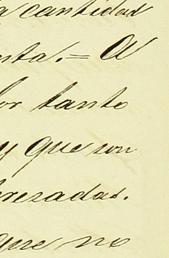 a cantidad
nta. = A
or tanto
y que son
presadas.
que no